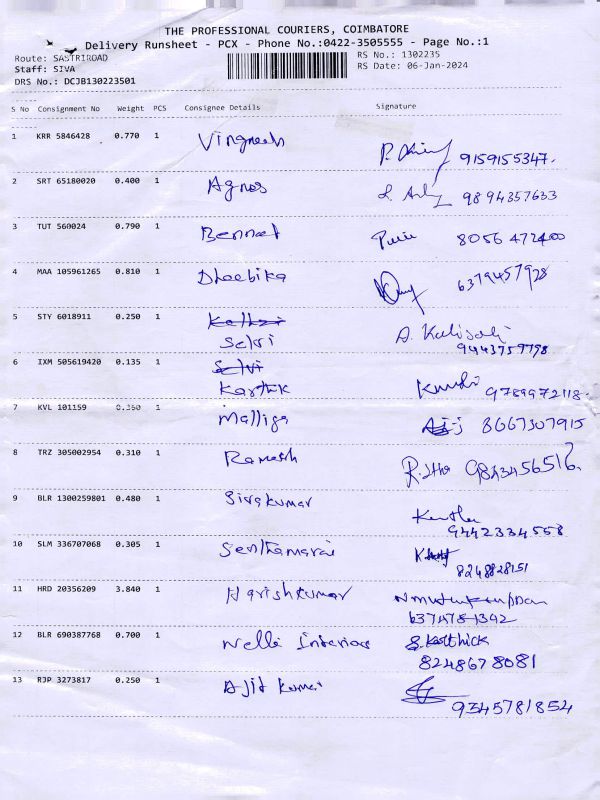 THE PROFESSIONAL COURIERS, COIMBATORE
Delivery Runsheet - PCX - Phone No.:0422-3505555 - Page No.:1
Route: SASTRIROAD
RS No.: 1302235
Staff: SIVA
RS Date: 06-Jan-2024
DRS No.: DCJB130223501
S No Consignment No Weight PCS Consignee Details Signature
1 KRR 5846428 0.770 1 Vingnesh
9159155347.
2 SRT 65180020 0.400 1 Agnes
9894357633
3 TUT 560024 0.790 1 Bennet
8056 472400
4 MAA 105961265 0.810 1 Dheebika
6379457928
5 STY 6018911 0.250 1
Selvi
9443759798
6 IXM 505619420 0.135 1 Selvi
Karthik
9789972118.
7 KVL 101159 0.350 1 Malliga
8667307915
8 TRZ 305002954 0.310 1 Ramesh
9843456516.
9 BLR 1300259801 0.480 1 Sivakumar
9442334558
10 SLM 336707068 0.305 1 Senthamarai
8248828151
11 HRD 20356209 3.840 1 Harishkumar
6374781342
12 BLR 690387768 0.700 1 Nelli Interior S. Karthick
8248678081
13 RJP 3273817 0.250 1 Ajit Kumar
9345781854